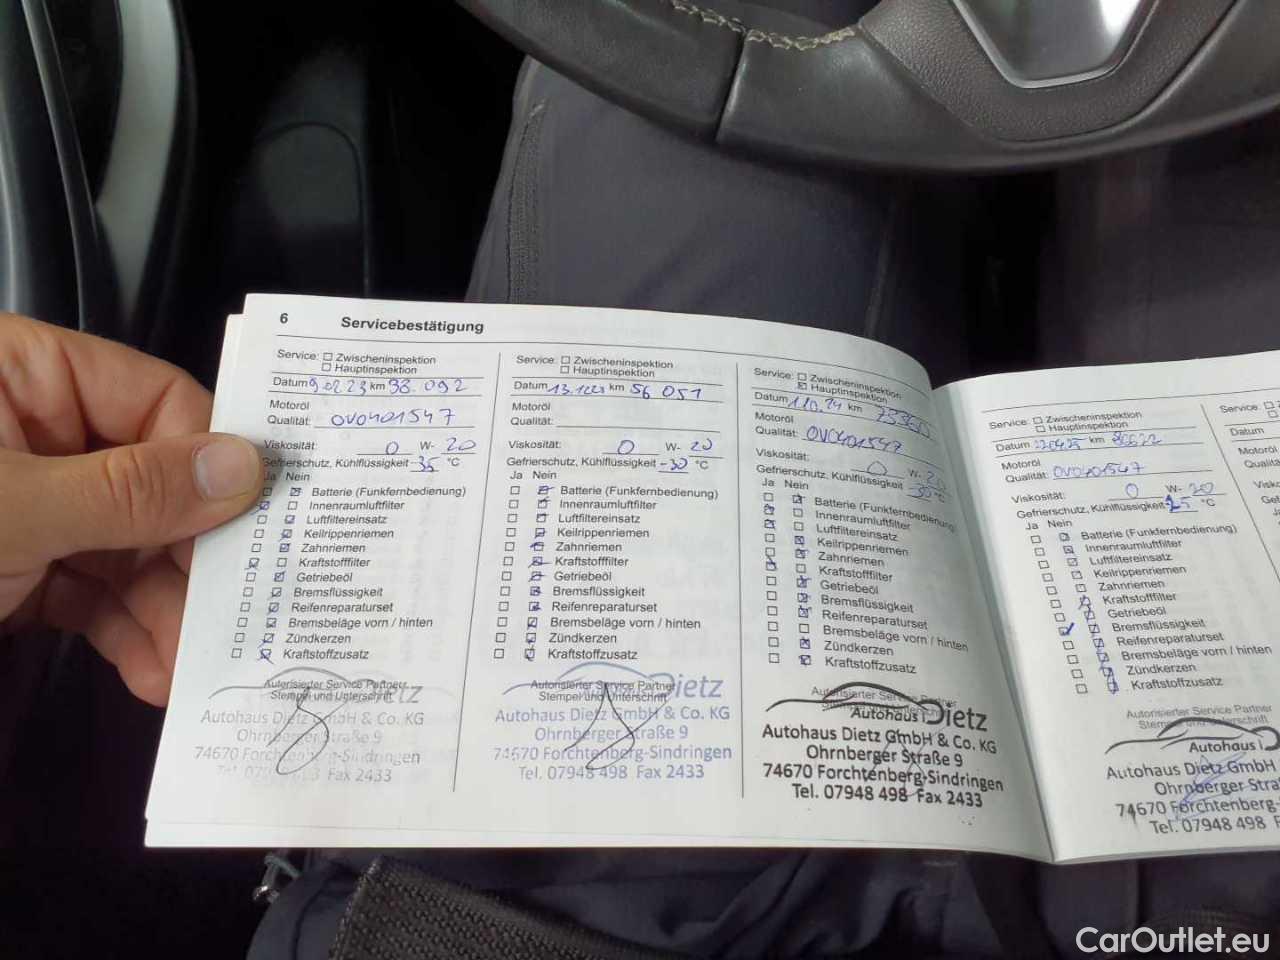 6 Servicebestätigung
Service: Zwischeninspektion
Hauptinspektion
Datum 9.02.23 km 38.092
Motoröl
Qualität: OVO401547
Viskosität: 0 W- 20
Gefrierschutz, Kühlflüssigkeit -35 °C
Ja Nein
Batterie (Funkfernbedienung)
Innenraumluftfilter
Luftfiltereinsatz
Keilrippenriemen
Zahnriemen
Kraftstofffilter
Getriebeöl
Bremsflüssigkeit
Reifenreparaturset
Bremsbeläge vorn / hinten
Zündkerzen
Kraftstoffzusatz
Autorisierter Service Partner
Stempel und Unterschrift
Dietz
Autohaus Dietz GmbH & Co. KG
Ohrnberger Straße 9
74670 Forchtenberg-Sindringen
Fax 2433
Service: Zwischeninspektion
Hauptinspektion
Datum km 56 051
Motoröl
Qualität:
Viskosität: 0 W- 20
Gefrierschutz, Kühlflüssigkeit -30 °C
Ja Nein
Batterie (Funkfernbedienung)
Innenraumluftfilter
Luftfiltereinsatz
Keilrippenriemen
Zahnriemen
Kraftstofffilter
Getriebeöl
Bremsflüssigkeit
Reifenreparaturset
Bremsbeläge vorn / hinten
Zündkerzen
Kraftstoffzusatz
Autorisierter Service Partner
Stempel und Unterschrift
Dietz
Autohaus Dietz GmbH & Co. KG
Ohrnberger Straße 9
74670 Forchtenberg-Sindringen
Tel. 07948 498 Fax 2433
Service: Zwischeninspektion
Hauptinspektion
Datum 1.10.24 km 73360
Motoröl
Qualität: OVO401547
Viskosität: 0 W- 20
Gefrierschutz, Kühlflüssigkeit -30 °C
Ja Nein
Batterie (Funkfernbedienung)
Innenraumluftfilter
Luftfiltereinsatz
Keilrippenriemen
Zahnriemen
Kraftstofffilter
Getriebeöl
Bremsflüssigkeit
Reifenreparaturset
Bremsbeläge vorn / hinten
Zündkerzen
Kraftstoffzusatz
Autorisierter Service Partner
Autohaus Dietz
Autohaus Dietz GmbH & Co. KG
Ohrnberger Straße 9
74670 Forchtenberg-Sindringen
Tel. 07948 498 Fax 2433
Service: Zwischeninspektion
Hauptinspektion
Datum 22.04.25 km 86622
Motoröl
Qualität: OVO401547
Viskosität: 0 W- 20
Gefrierschutz, Kühlflüssigkeit °C
Ja Nein
Batterie (Funkfernbedienung)
Innenraumluftfilter
Luftfiltereinsatz
Keilrippenriemen
Zahnriemen
Kraftstofffilter
Getriebeöl
Bremsflüssigkeit
Reifenreparaturset
Bremsbeläge vorn / hinten
Zündkerzen
Kraftstoffzusatz
Autorisierter Service Partner
Stempel und Unterschrift
Autohaus
Autohaus Dietz GmbH
Ohrnberger
74670 Forchtenberg-
Tel. 07948 498
Service:
Datum
Motoröl
CarOutlet.eu